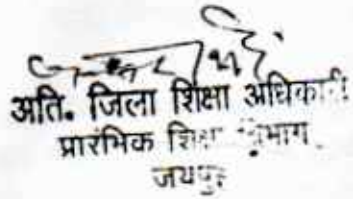 अति. जिला शिक्षा अधिकारी
प्रारंभिक शिक्षा विभाग
जयपुर